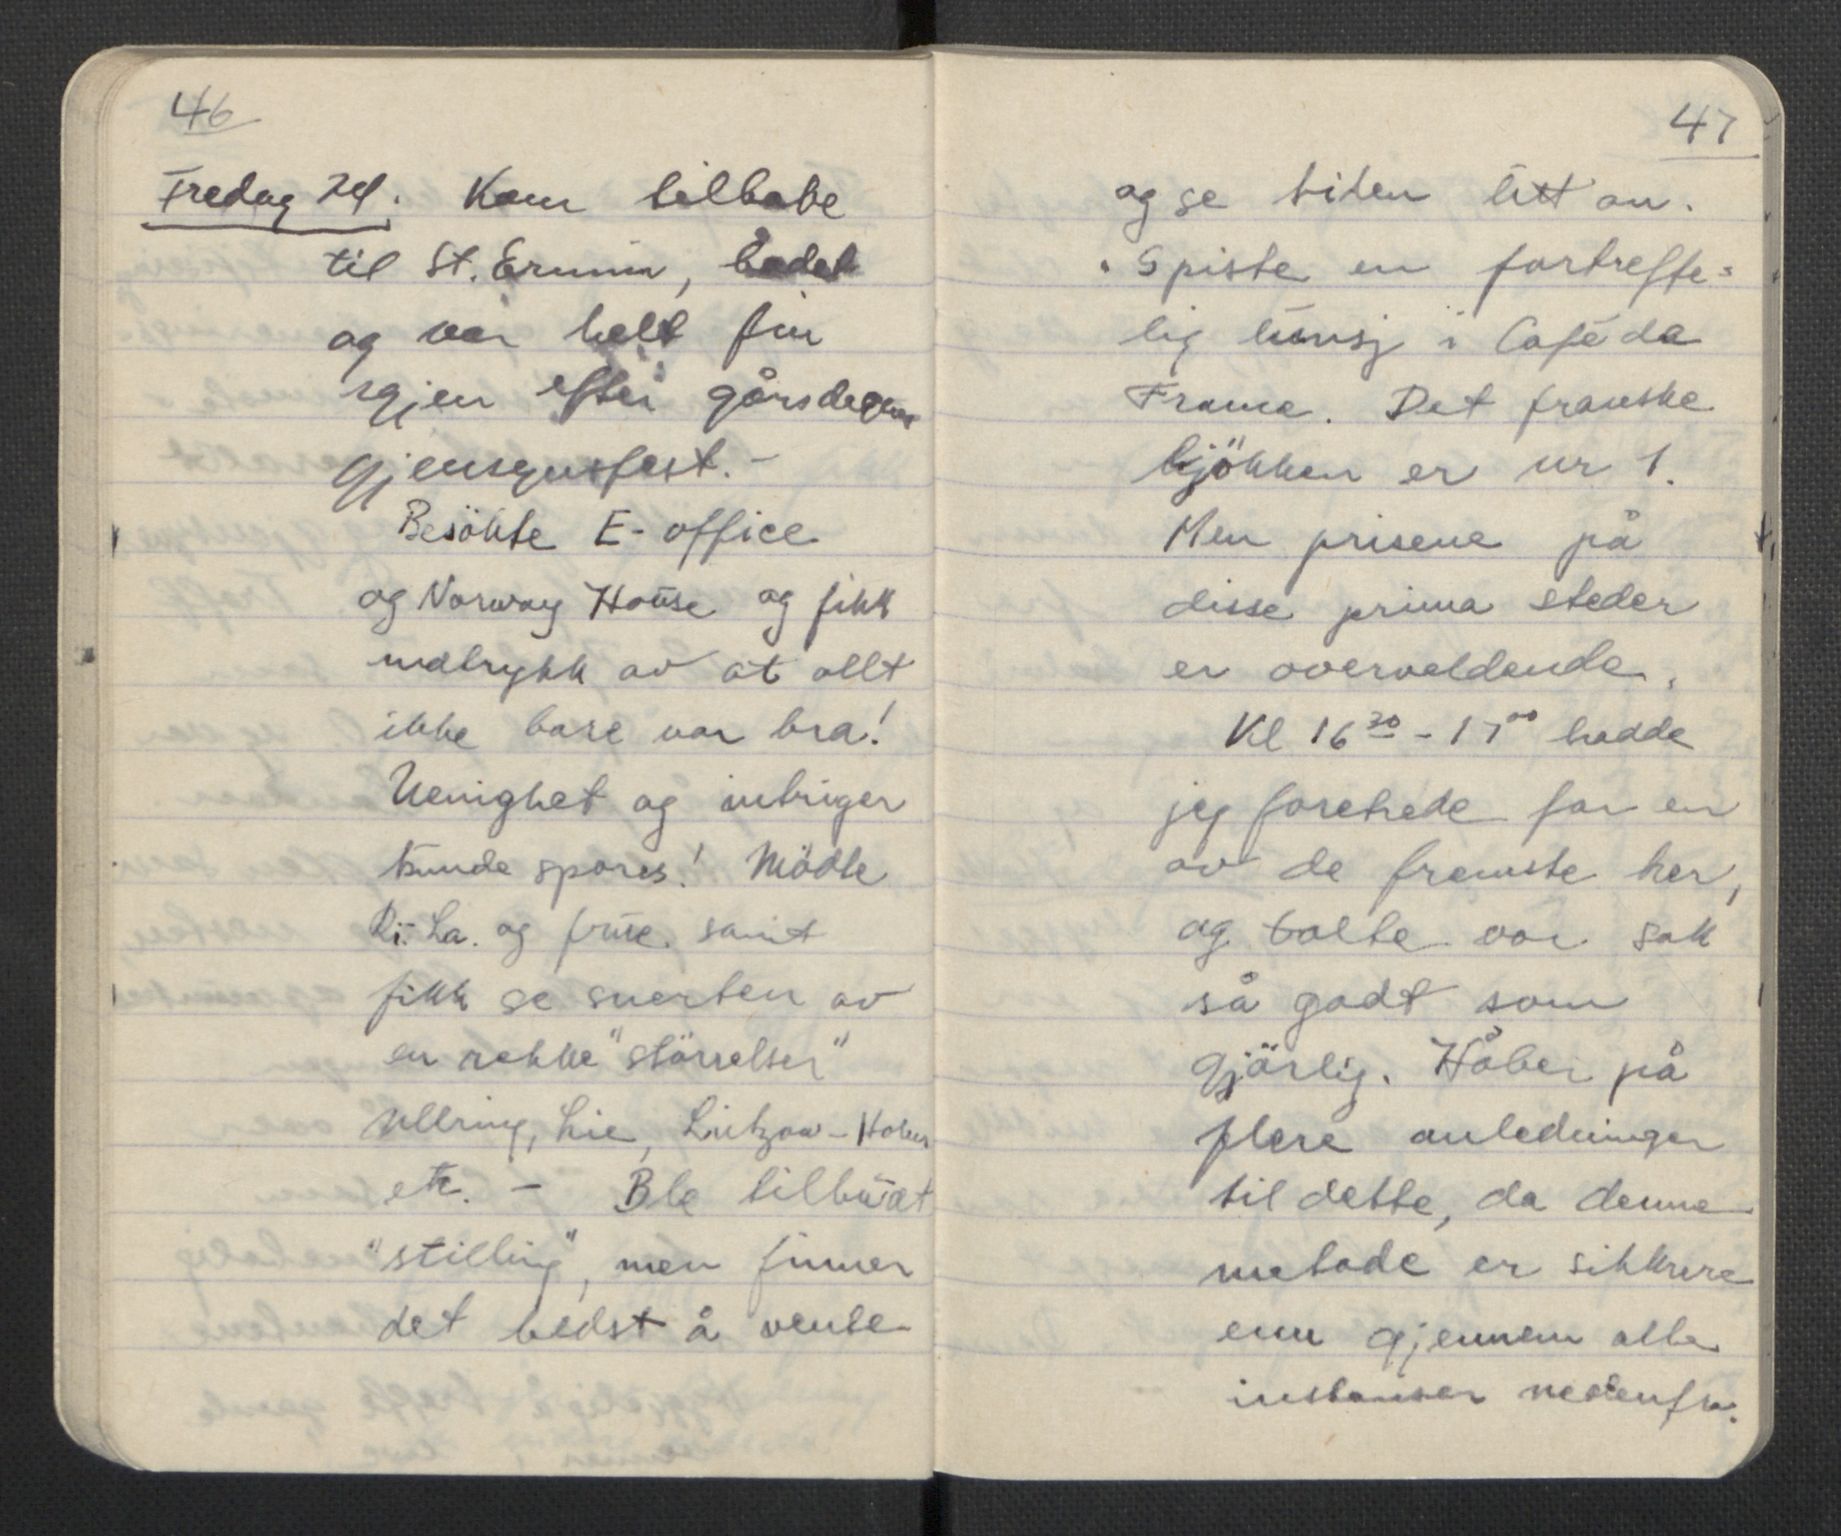 46
Fredag 24. Kom tilbake
til St. Ermin, badet
og var helt fin
igjen efter gårsdagens
gjensynsfest. -
Besökte E-office
og Norway House og fikk
indtrykk av at allt
ikke bare var bra!
Uenighet og intriger
kunde spores! Mödte
Ri. La. og frue. samt
fikk se snerten av
en rekke "störrelser"
Ullring, Lie, Lützow-Holm
etc. - Ble tilbudt
"stilling", men finner
det bedst å vente
47
og se tiden litt an.
Spiste en fortreffe=
lig lunsj i Café de
France. Det franske
kjökken er nr 1.
Men prisene på
disse prima steder
er overveldende.
Kl 16 30 - 17 00 hadde
jeg foretrede for en
av de fremste her,
og talte vor sak
så godt som
gjörlig. Håber på
flere anledninger
til dette, da denne
metode er sikkrere
enn gjennem alle
instanser nedenfra.